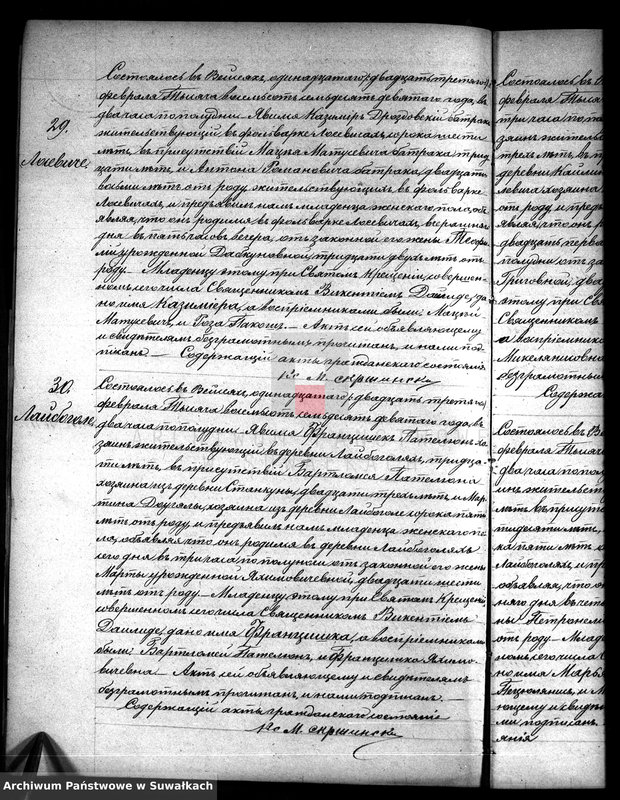 29.
Лоевиче
Состоялось въ Вейсеяхъ, одинадцатого /двадцать третяго/
февраля Тысяча восемьсотъ семьдесятъ девятаго года, въ
два часа пополудни. Явился Казимиръ Дроздовскій батракъ
жительствующій въ фольваркѣ Лоевичахъ сорока шести
лѣтъ, въ присутствіи Мацея Матукевича батрака трид
цати лѣтъ и Антона Романовича батрака, двадцать
восьми лѣтъ отъ роду, жительствующихъ въ фольваркѣ
Лоевичахъ, и предъявилъ намъ младенца женскаго пола, объ
являя, что онъ родился въ фольваркѣ Лоевичахъ, вчерашняго
дня въ пять часовъ вечера, отъ законной его жены Теофи
ліи урожденной двухъ лѣтъ отъ
роду. — Младенцу этому при Святомъ Крещеніи, совершен
номъ сего числа Священникомъ Викентіемъ Даилиде, да
но имя Казимiера, а воспріемниками были: Мацей
Матукевичъ, и Роза — Актъ сей объявляющему
и свидѣтелямъ безграмотнымъ прочитанъ, и нами под
писанъ. — Содержащій акты гражданскаго состоянія
Кс. М.
30.
Лайбоголе
Состоялось въ Вейсеяхъ, одинадцатаго /двадцать третяго/
февраля Тысяча восемьсотъ семьдесятъ девятаго года, въ
два часа пополудни. Явился Францишекъ Пателюнъ хо
зяинъ жительствующій въ деревни Лайбоголяхъ, тридца
ти лѣтъ, въ присутствіи Бартломея Пателюна
хозяина изъ деревни Станкуны, двадцати трехъ лѣтъ и Мар
тина хозяина изъ деревни Лайбоголе сорока пяти
лѣтъ отъ роду, и предъявилъ намъ младенца женскаго по
ла, объявляя, что онъ родился въ деревни Лайбоголяхъ
сего дня въ три часа пополуночи отъ законной его жены
Марты урожденной Яхимовичевной, двадцати шести
лѣтъ отъ роду. — Младенцу этому при Святомъ Крещеніи
совершенномъ сего числа Священникомъ Викентіемъ
Даилиде, дано имя Францишка, а воспріемниками
были: Бартломей Пателюнъ, и Францишка Яхимо
вичевна. — Актъ сей объявляющему и свидѣтелямъ
безграмотнымъ прочитанъ и нами подписанъ. —
Содержащій акты гражданскаго состоянія
Кс. М.
Состоялось въ В
февраля Тыся
три часа попо
заинъ жительс
трехъ лѣтъ, въ
деревни
левича хозяина
отъ роду, и предъ
являя, что онъ
двадцать перв
полудни отъ за
двад
этому при Свя
Священникомъ
а воспріемник
безграмотны
Содержа
Состоялось въ В
февраля Тыся
два часа попо
инъ жительст
лѣтъ въ присут
тидесяти лѣтъ,
ка пяти лѣтъ
Лайбоголяхъ, и пр
объявляя, что он
няго дня въ четы
ны Петронели
отъ роду. — Младе
номъ сего числа
но имя Марья
и М
ющему и свидѣт
ми подписанъ
янія
Archiwum Państwowe w Suwałkach